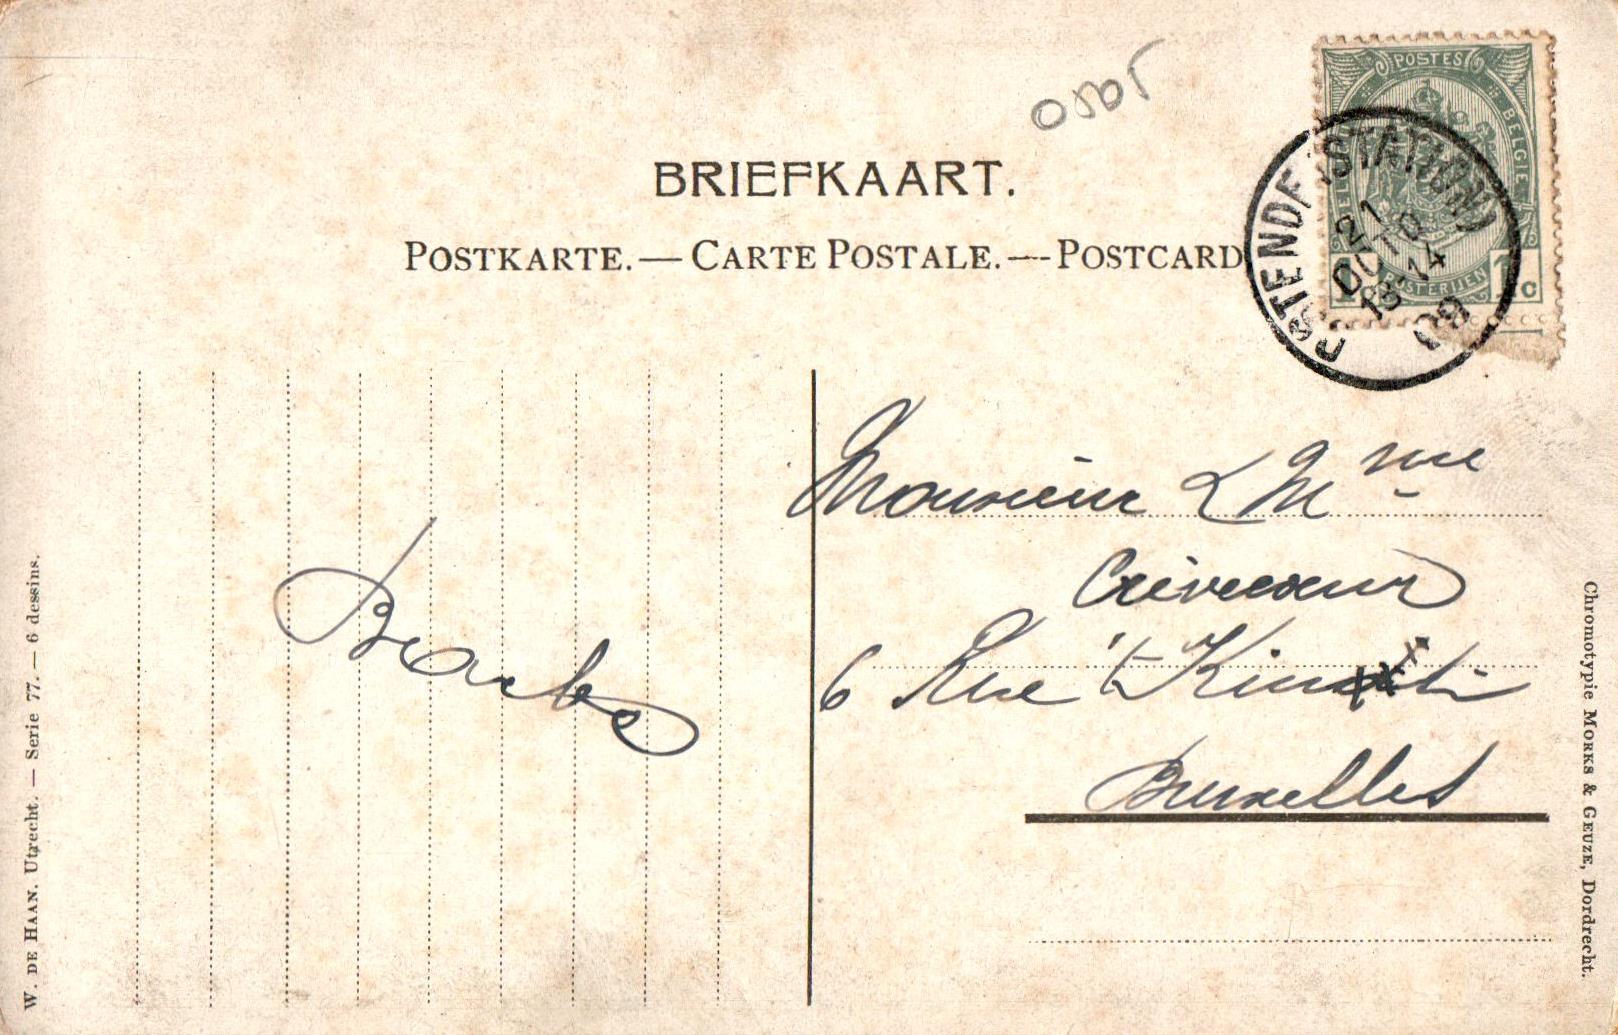 BRIEFKAART.
POSTKARTE. — CARTE POSTALE. — POSTCARD
POSTES
BELGIE
POSTERIJEN
1 c
OSTENDE (STATION)
21
OCTO
13-14
09
Monsieur & Mme
Crèvecoeur
6 Rue 't Kint
Bruxelles
W. DE HAAN. Utrecht. — Serie 77. — 6 dessins.
Chromotypie MORKS & GEUZE, Dordrecht.